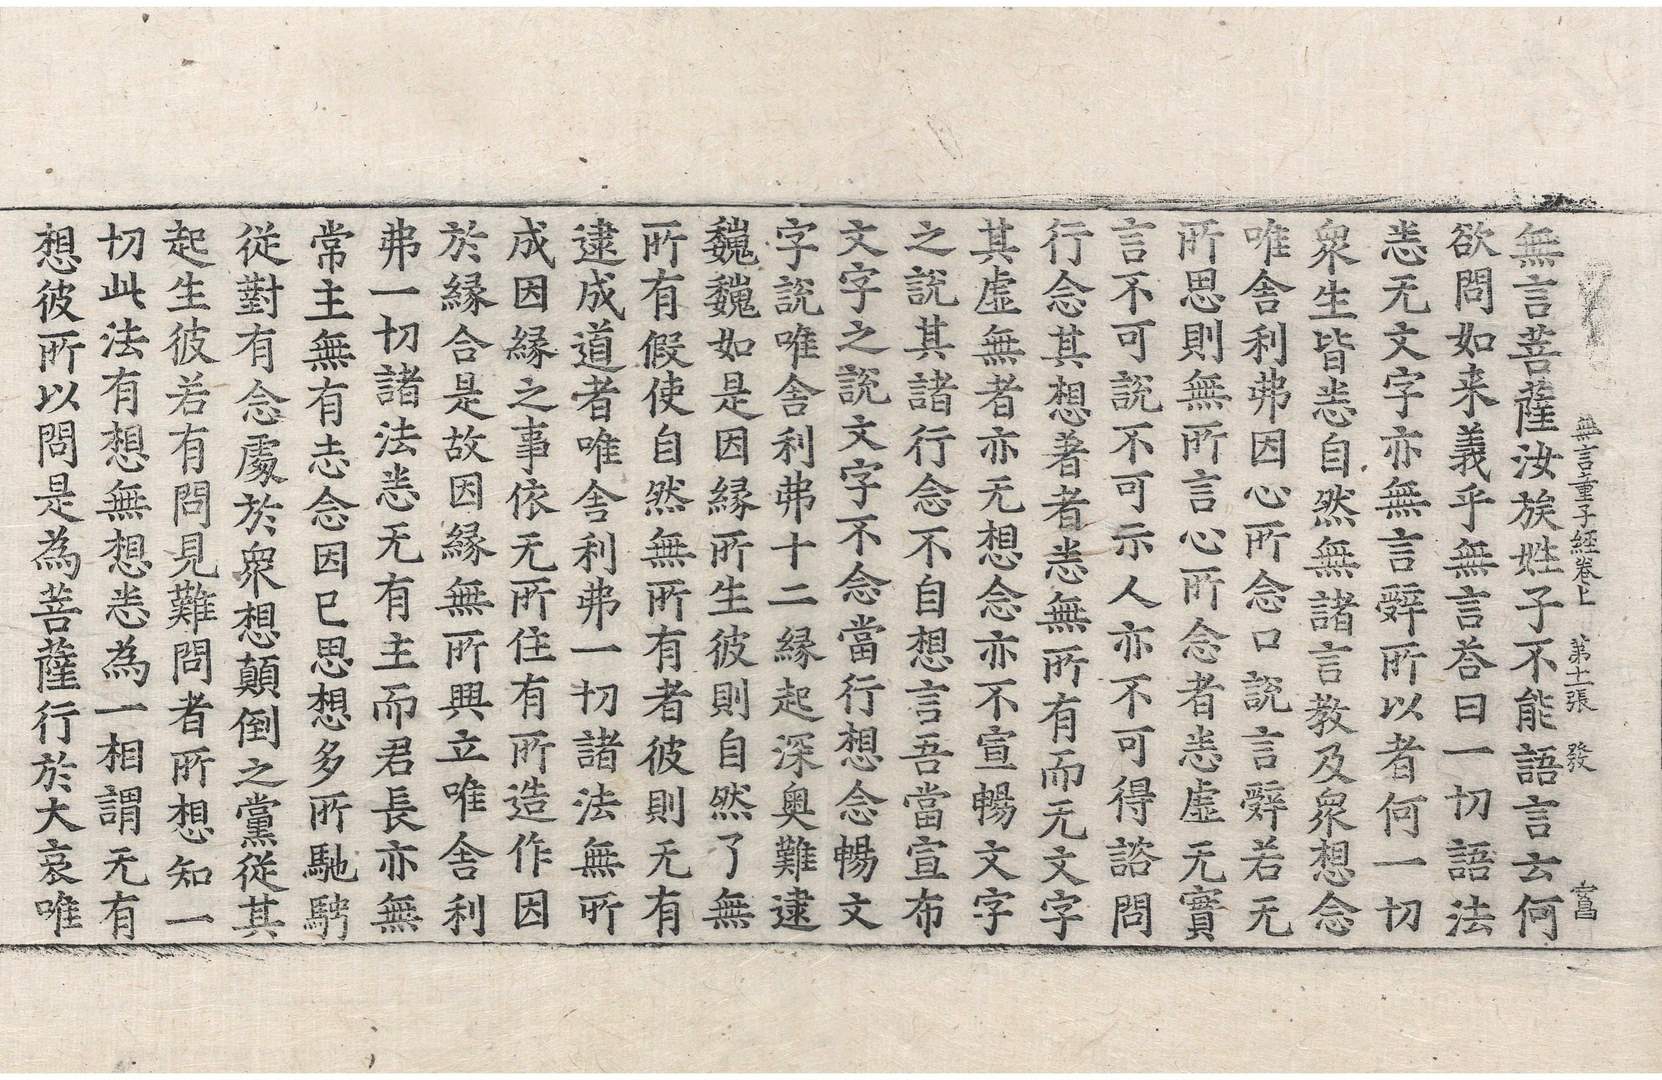 無言童子經卷上　第十一張　發　吉昌
無言菩薩汝族姓子不能語言云何
欲問如来義乎無言荅曰一切語法
悉无文字亦無言辭所以者何一切
衆生皆悉自然無諸言教及衆想念
唯舎利弗因心所念口說言辭若无
所思則無所言心所念者悉虛无實
言不可說不可示人亦不可得諮問
行念其想著者悉無所有而无文字
其虛無者亦无想念亦不宣暢文字
之說其諸行念不自想言吾當宣布
文字之說文字不念當行想念暢文
字說唯舎利弗十二緣起深奥難逮
巍巍如是因緣所生彼則自然了無
所有假使自然無所有者彼則无有
逮成道者唯舎利弗一切諸法無所
成因緣之事依无所住有所造作因
於緣合是故因緣無所興立唯舎利
弗一切諸法悉无有主而君長亦無
常主無有志念因已思想多所馳騁
從對有念處於衆想顛倒之黨從其
起生彼若有問見難問者所想知一
切此法有想無想悉為一相謂无有
想彼所以問是為菩薩行於大哀唯